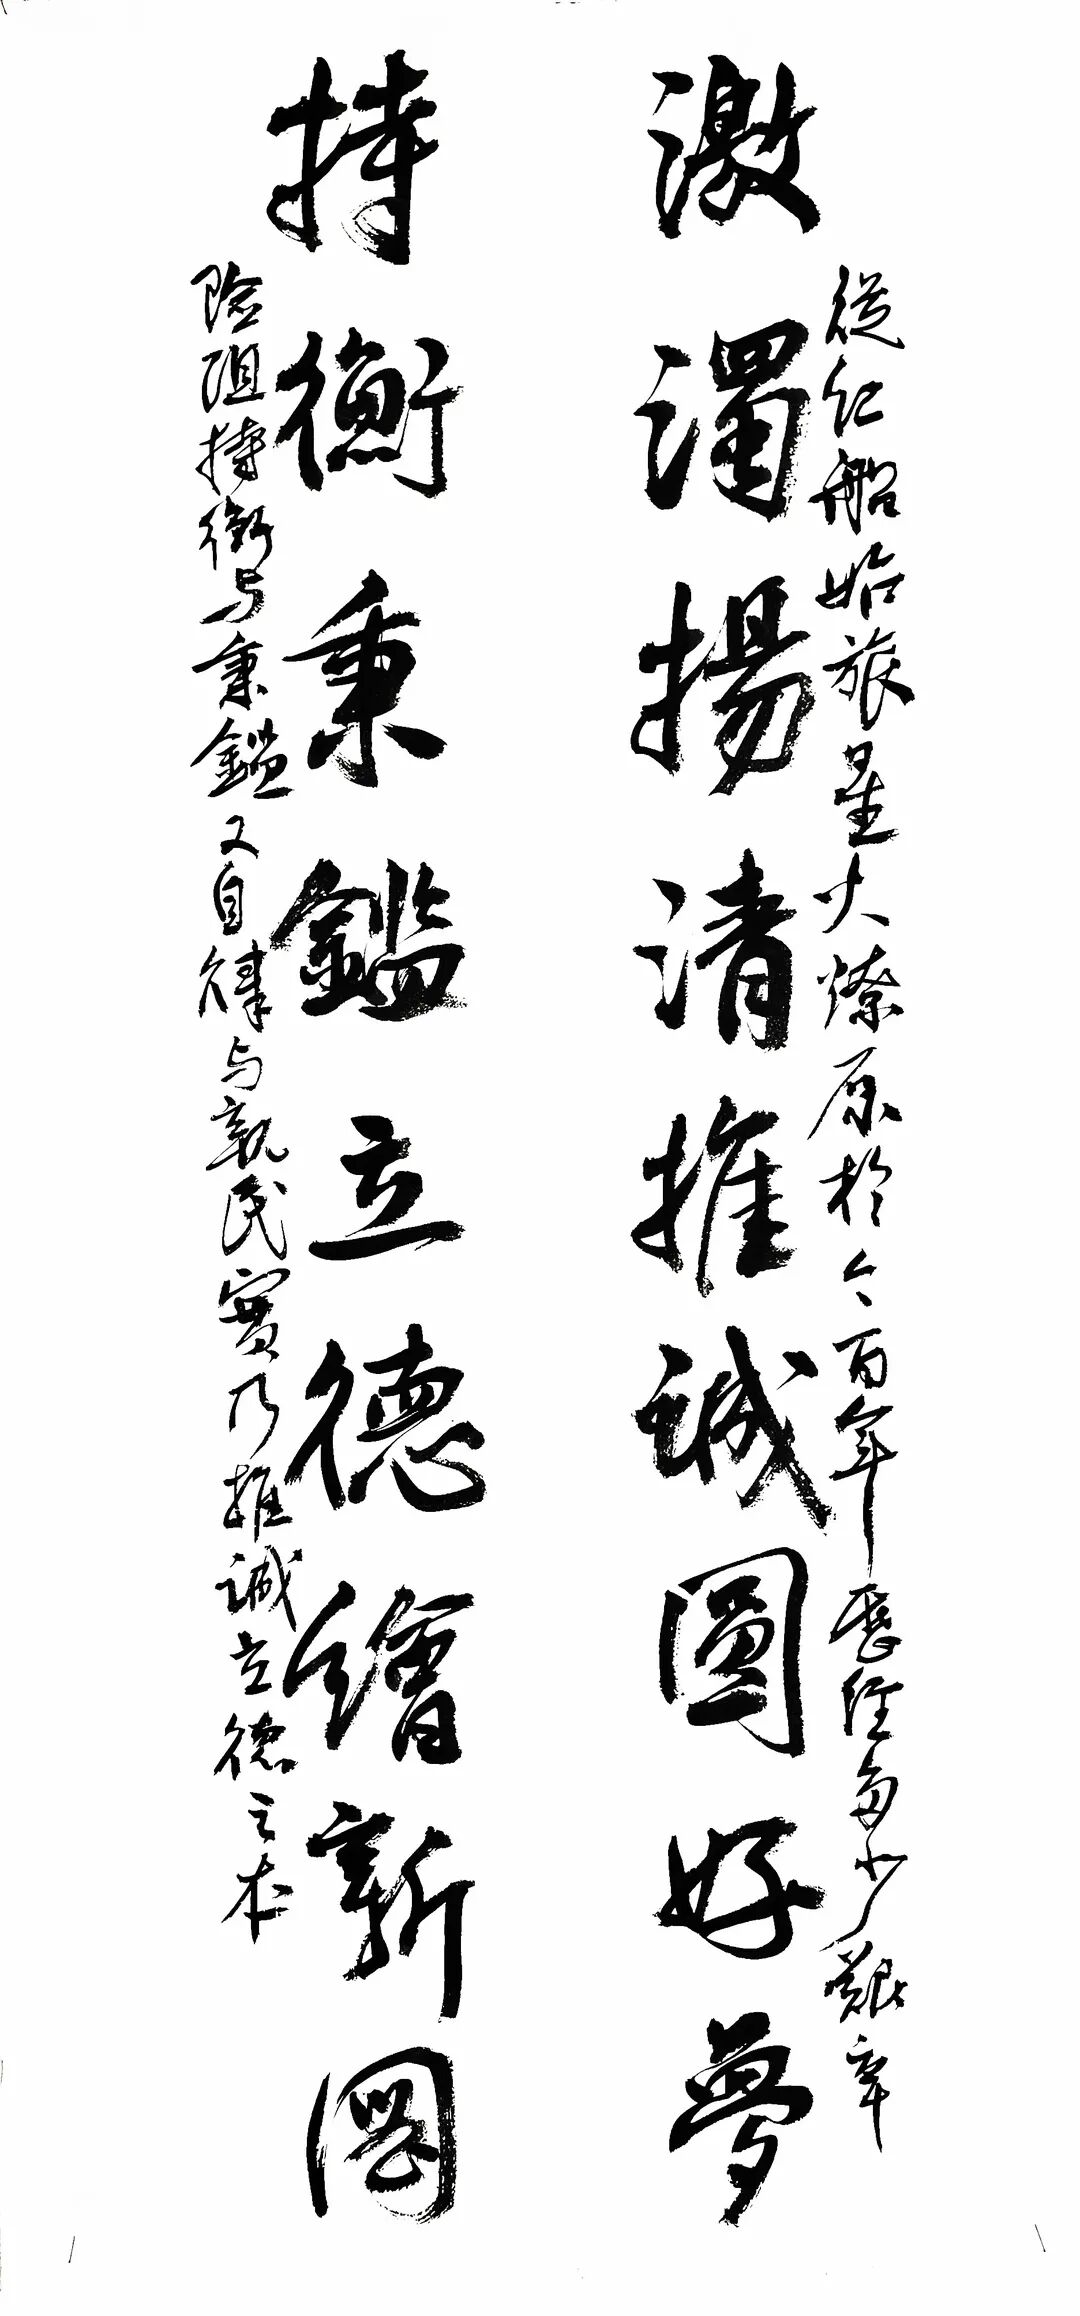 從红船始旅星火燎原於今百年歷经多少艱辛
激濁揚清推誠圓好夢
持衡秉鑑立德繪新圖
險阻持衡与秉鑑又自律与親民實乃推誠立德之本